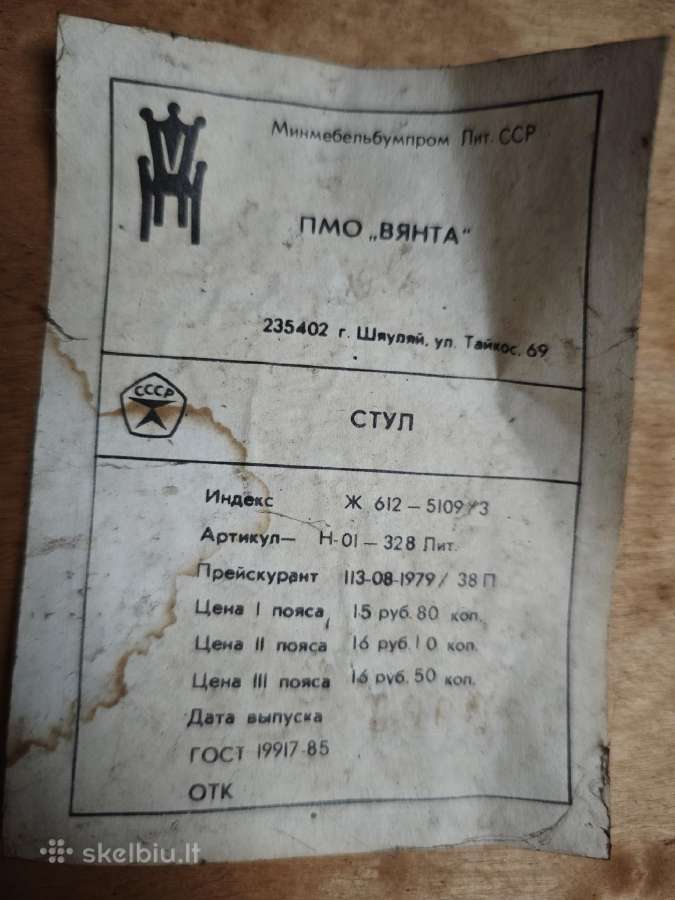 Минмебельбумпром Лит. ССР
ПМО „ВЯНТА“
235402 г. Шяуляй, ул. Тайкос, 69
СССР
СТУЛ
Индекс Ж 612 – 5109/3
Артикул— Н-01 – 328 Лит.
Прейскурант 113-08-1979 / 38 П
Цена I пояса 15 руб. 80 коп.
Цена II пояса 16 руб. 10 коп.
Цена III пояса 16 руб. 50 коп.
Дата выпуска
ГОСТ 19917-85
ОТК
skelbiu.lt